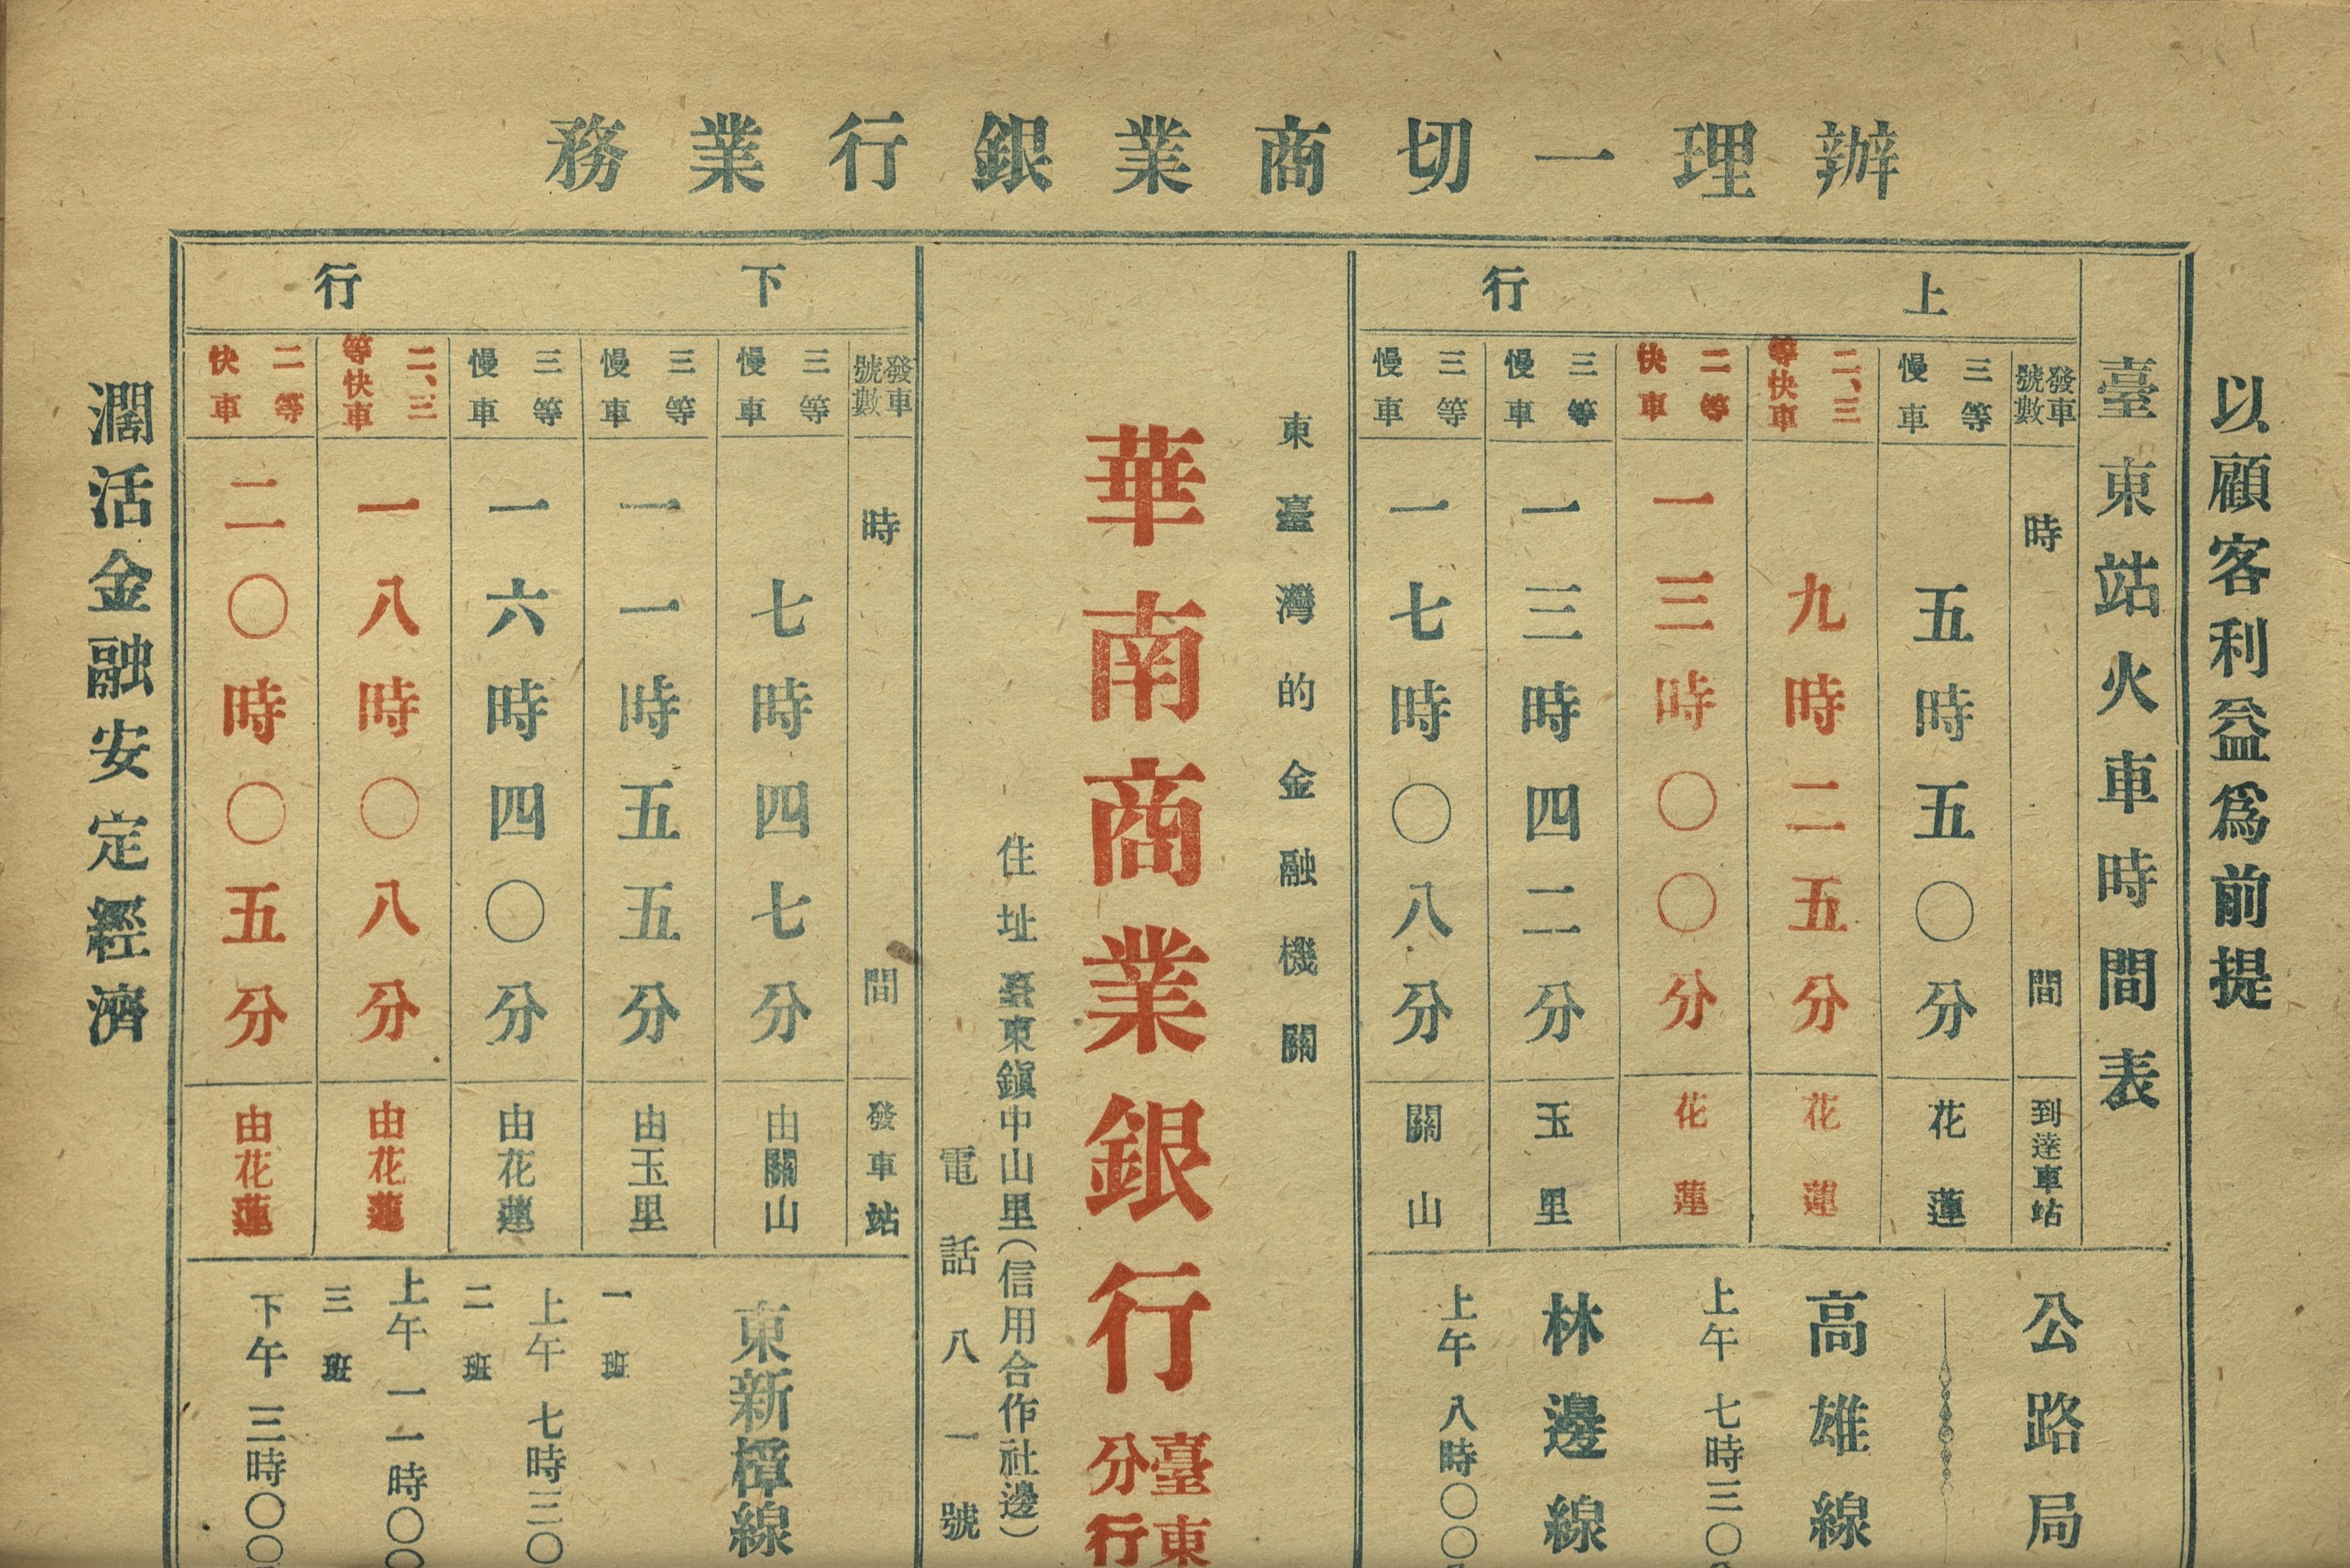 辦理一切商業銀行業務
以顧客利益爲前提
臺東站火車時間表
上行
發車號數 時間 到達車站
三等慢車 五時五〇分 花蓮
二、三等快車 九時二五分 花蓮
二等快車 一三時〇〇分 花蓮
三等慢車 一三時四二分 玉里
三等慢車 一七時〇八分 關山
公路局
高雄線
上午 七時三〇
林邊線
上午 八時〇〇
東臺灣的金融機關
華南商業銀行臺東分行
住址 臺東鎭中山里(信用合作社邊)
電話八一號
下行
發車號數 時間 發車站
三等慢車 七時四七分 由關山
三等慢車 一一時五五分 由玉里
三等慢車 一六時四〇分 由花蓮
二、三等快車 一八時〇八分 由花蓮
二等快車 二〇時〇五分 由花蓮
東新樟線
一班
上午 七時三〇
二班
上午 一一時〇〇
三班
下午 三時〇〇
濶活金融安定經濟